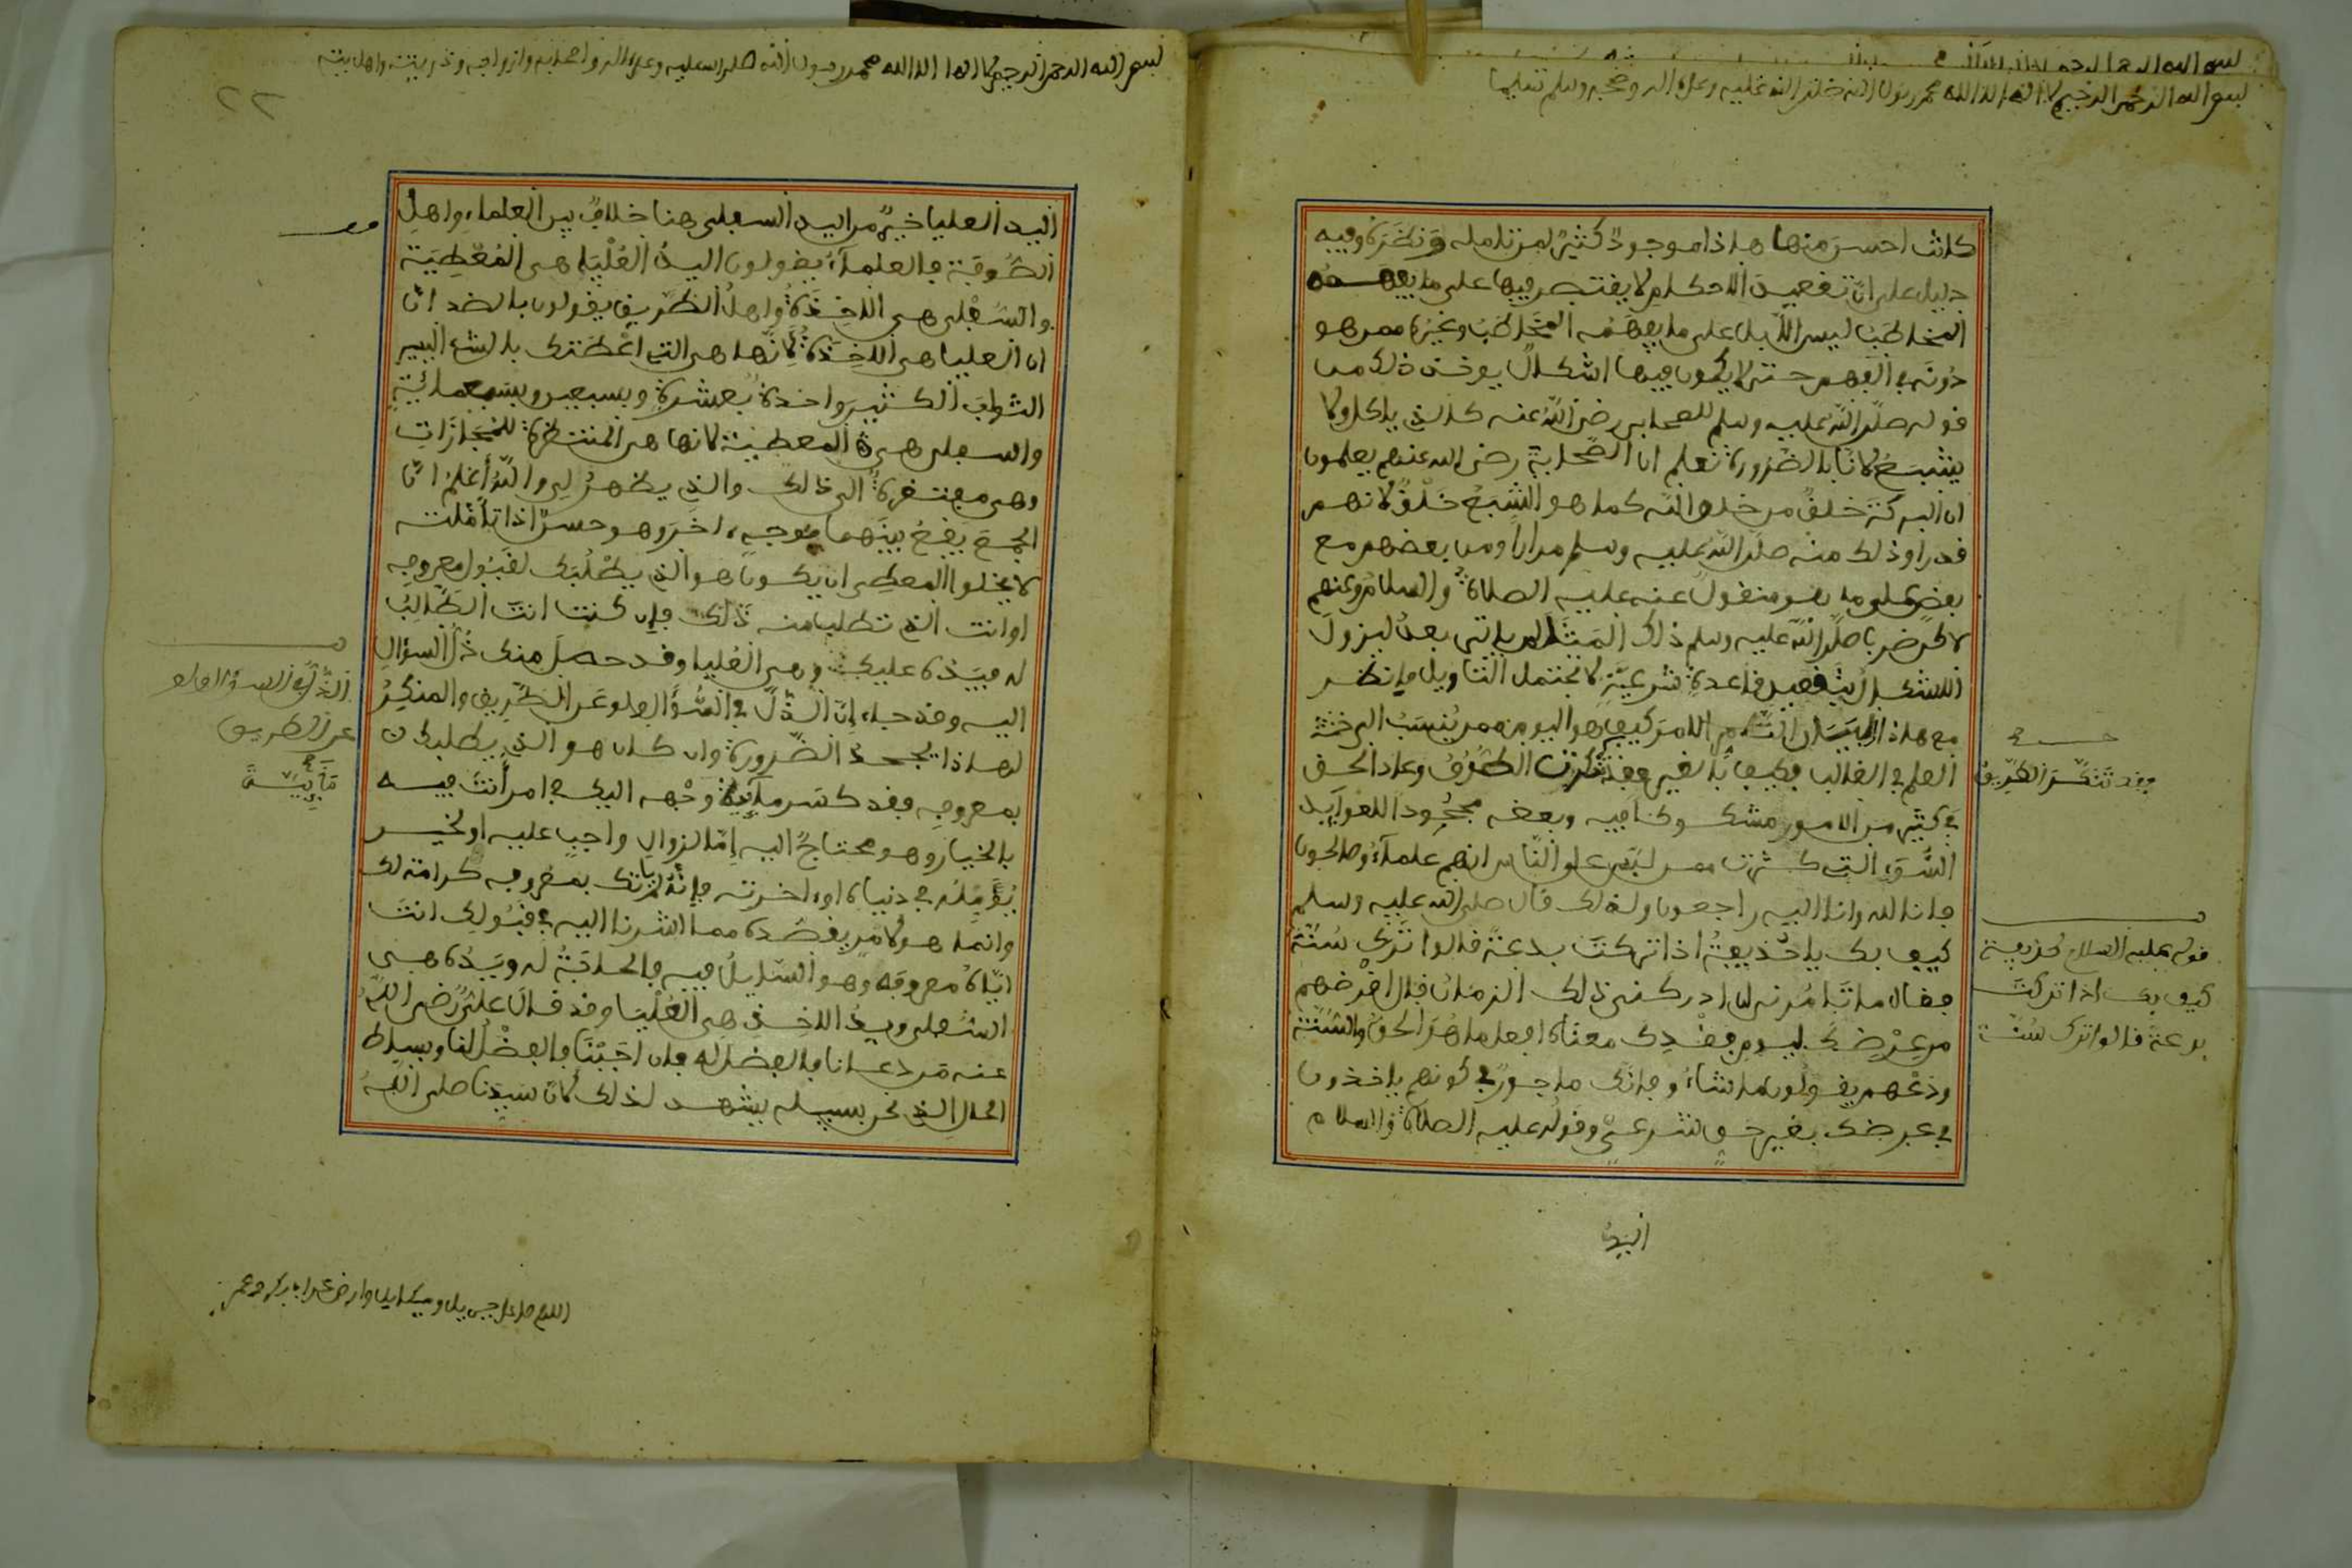 بسم الله الرحمن الرحيم لا اله الا الله محمد رسول الله صلى الله عليه وعلى اله وصحبه وسلم تسليما
كانت احسن منها هاذا موجود كثير لمن تامله ونظره وفيه
دليل على ان تقعيد الاحكام لا يقتصر فيها على ما يفهمه
المخاطب ليس الا بل على ما يفهمه المخاطب وغيره ممن هو
دونه في الفهم حتى لا يكون فيها اشكال يوخذ ذلك من
قوله صلى الله عليه وسلم للصحابي رضي الله عنه كالذي ياكل ولا
يشبع لانا بالضرورة نعلم ان الصحابة رضي الله عنهم يعلمون
ان البركة خلق من خلق الله كما هو الشبع خلق لانهم
قد راوا ذلك منه صلى الله عليه وسلم مرارا ومن بعضهم مع
بعض على ما هو منقول عنه عليه الصلاة والسلام وعنهم
لاكن ضرب صلى الله عليه وسلم ذلك المثل لمن ياتي بعد ليزول
الاشكال بتقعيد قاعدة شرعية لا تحتمل التاويل فانظر
مع هاذا البيان التام الامر كيف هو اليوم ممن ينسب الى
العلم في الغالب فكيف بالغير فقد تنكرت الطرق وعاد الحق
في كثير من الامور مشكوكا فيه وبعضه مجحودا للعوايد
السوء التي كثرت ممن لبس على الناس انهم علماء وصالحون
فانا لله وانا اليه راجعون ولذلك قال صلى الله عليه وسلم
كيف بك يا حذيفة اذا تركت بدعة قالوا ترك سنة
فقال ما تامرني ان ادركني ذلك الزمان قال اقرضهم
من عرضك ليوم فقدك معناه افعل ما هو الحق والسنة
ودعهم يقولون ما شاءوا فانك ماجور في كونهم ياخذون
في عرضك بغير حق شرعي وقوله عليه الصلاة والسلام
اليد
فقد تنكرت الطريق
قوله عليه السلام لحذيفة
كيف بك اذا تركت
بدعة قالوا ترك سنة
بسم الله الرحمن الرحيم لا اله الا الله محمد رسول الله صلى الله عليه وعلى اله واصحابه وازواجه وذريته واهل بيته
٢٢
اليد العليا خير من اليد السفلى هنا خلاف بين العلماء واهل
الصوفة فالعلماء يقولون اليد العليا هي المعطية
والسفلى هي الاخذة واهل الطريق يقولون بالضد
ان العليا هي الاخذة لانها هي التي اعطتك بالشيء اليسير
الثواب الكثير واحدة بعشرة وبسبعين وبسبعمائة
والسفلى هي المعطية لانها هي المنتظرة للمجازات
وهي مفتقرة الى ذلك والذي يظهر لي والله اعلم ان
الجمع يقع بينهما بوجه اخر وهو حسن اذا تاملته
لا يخلوا المعطي ان يكون هو الذي يطلبك لقبول معروفه
او انت الذي تطلب منه ذلك فان كنت انت الطالب
له فيده عليك هي العليا وقد حصل منك ذل السؤال
اليه وقد جاء ان الذل في السؤال ولو عن الطريق والمنكر
لهاذا يجحد الضرورة وان كان هو الذي يطلبك
بمعروفه فقد كسر ماية وجهه اليك في امر انت فيه
بالخيار وهو محتاج اليه اما لزوال واجب عليه او لخير
يؤمله في دنياه او اخرته فانه لم ياتك بمعروفه كرامة لك
وانما هو لامر يقصده مما اشرنا اليه في قبولك انت
اياه معروفه وهو السايل فيه فالحاجة له ويده هي
السفلى ويد الاخذ هي العليا وقد قال علي رضي الله
عنه من دعانا فالفضل له فان اجبنا فالفضل لنا وبساط
الحال الذي نحن بسبيله يشهد لذلك لان سيدنا صلى الله
الذل في السؤال ولو
عن الطريق